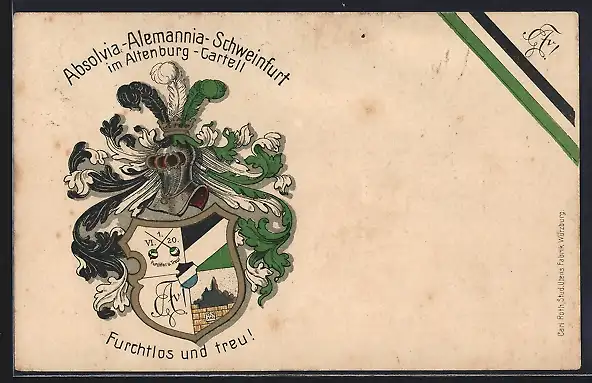 Absolvia-Alemannia-Schweinfurt
im Altenburg-Cartell
1.
VI. 20.
Furchtlos u. treu!
Furchtlos und treu!
Carl Roth, Stud. Utens. Fabrik Würzburg.